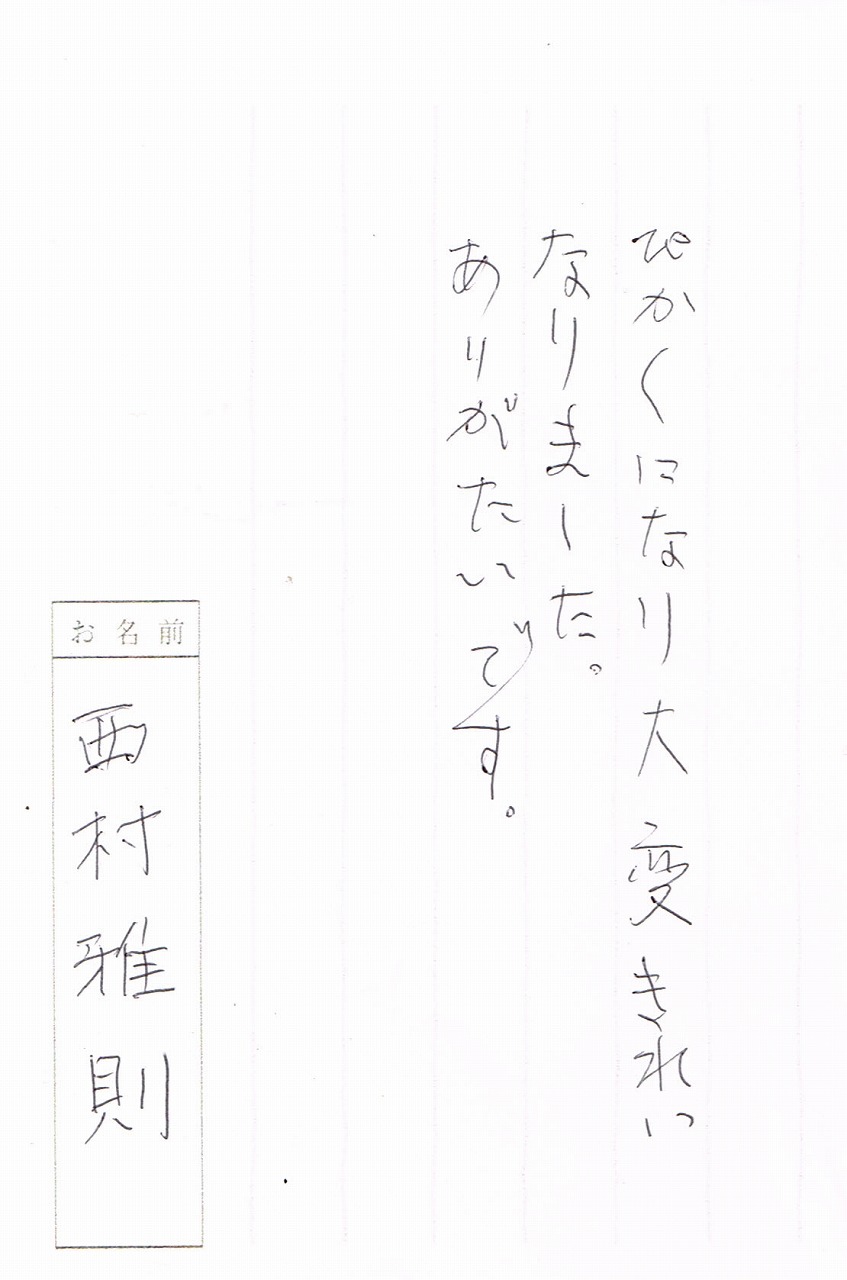 ぴかくになり大変きれい
なりました。
ありがたいです。
お名前
西村雅則